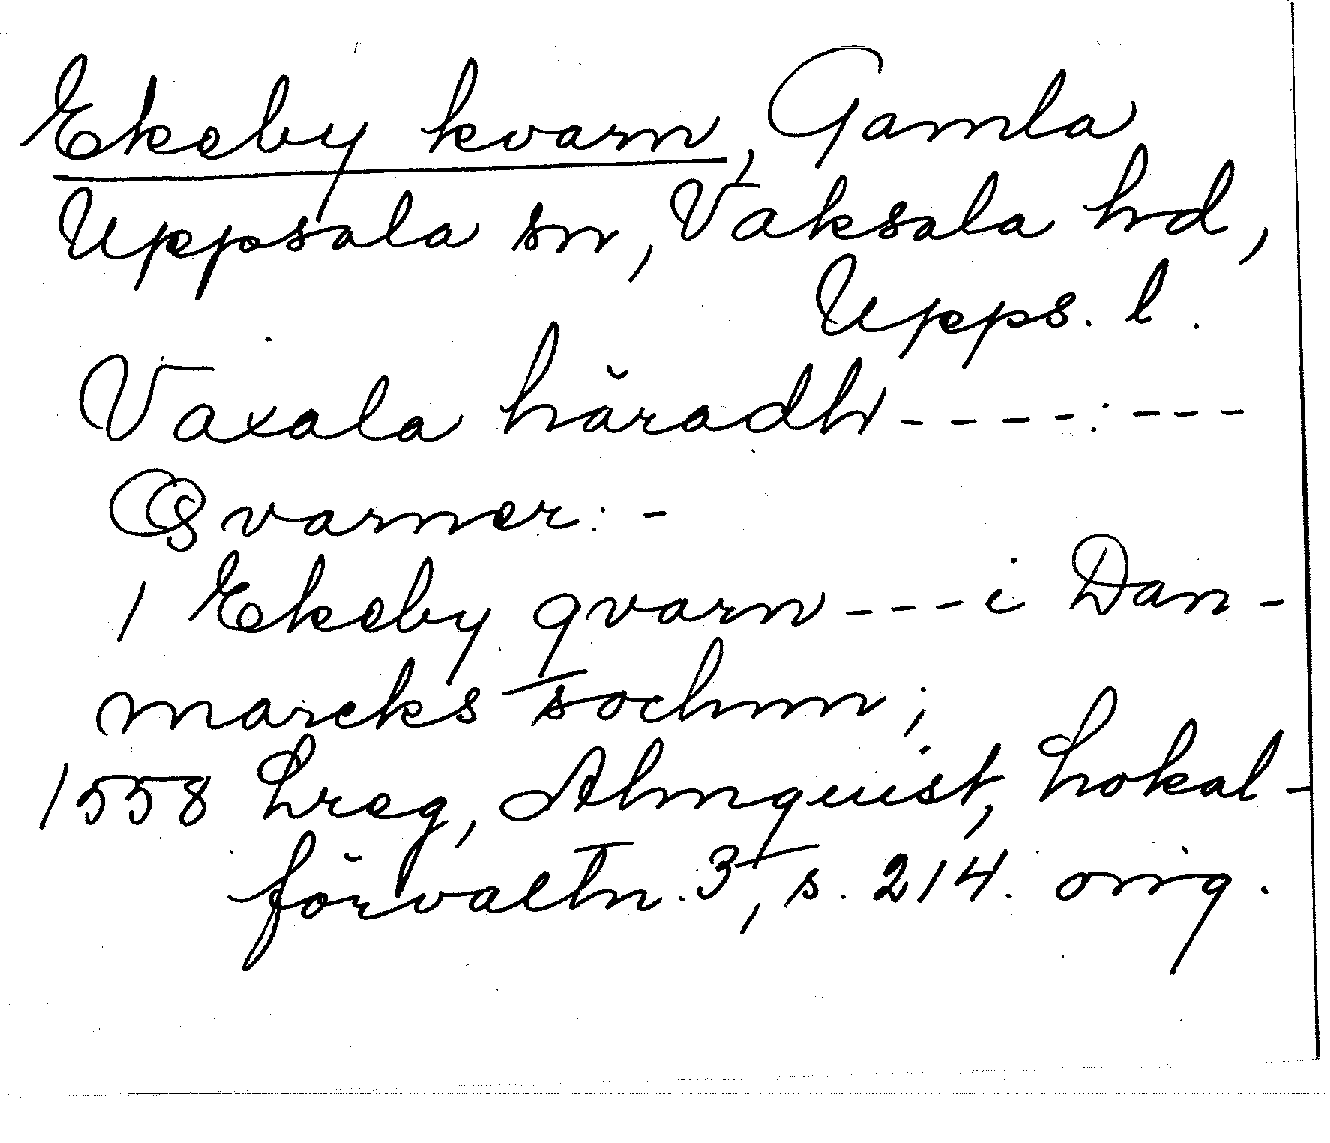 Ekeby kvarn, Gamla
Uppsala sn, Vaksala hd,
Upps. l.
Vaxala häradh ----:---
Qvarner: -
1 Ekeby qvarn --- i Dan-
marcks sochnn;
1558 Lreg, Almquist, Lokal-
förvaltn. 3, s. 214. orig.